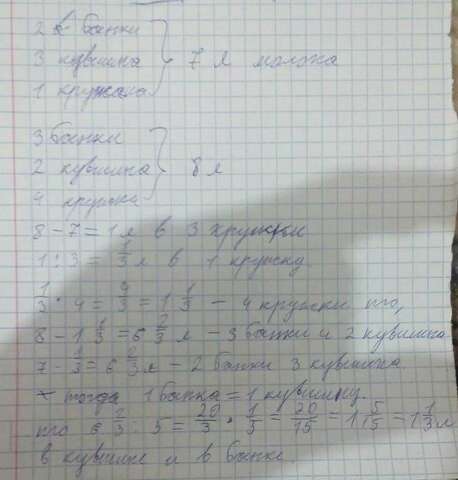 2 банки
3 кувшина } 7 л молока
1 кружка
3 банки
2 кувшина } 8 л
4 кружки
8 - 7 = 1 л в 3 кружки
1 : 3 = 1/3 л в 1 кружку
1/3 · 4 = 4/3 = 1 1/3 - 4 кружки
8 - 1 1/3 = 6 2/3 л - 3 банки и 2 кувшина
7 - 1/3 = 6 2/3 л - 2 банки 3 кувшина
тогда 1 банка = 1 кувшину.
6 2/3 : 5 = 20/3 · 1/5 = 20/15 = 1 5/15 = 1 1/3 л
в кувшине и в банке